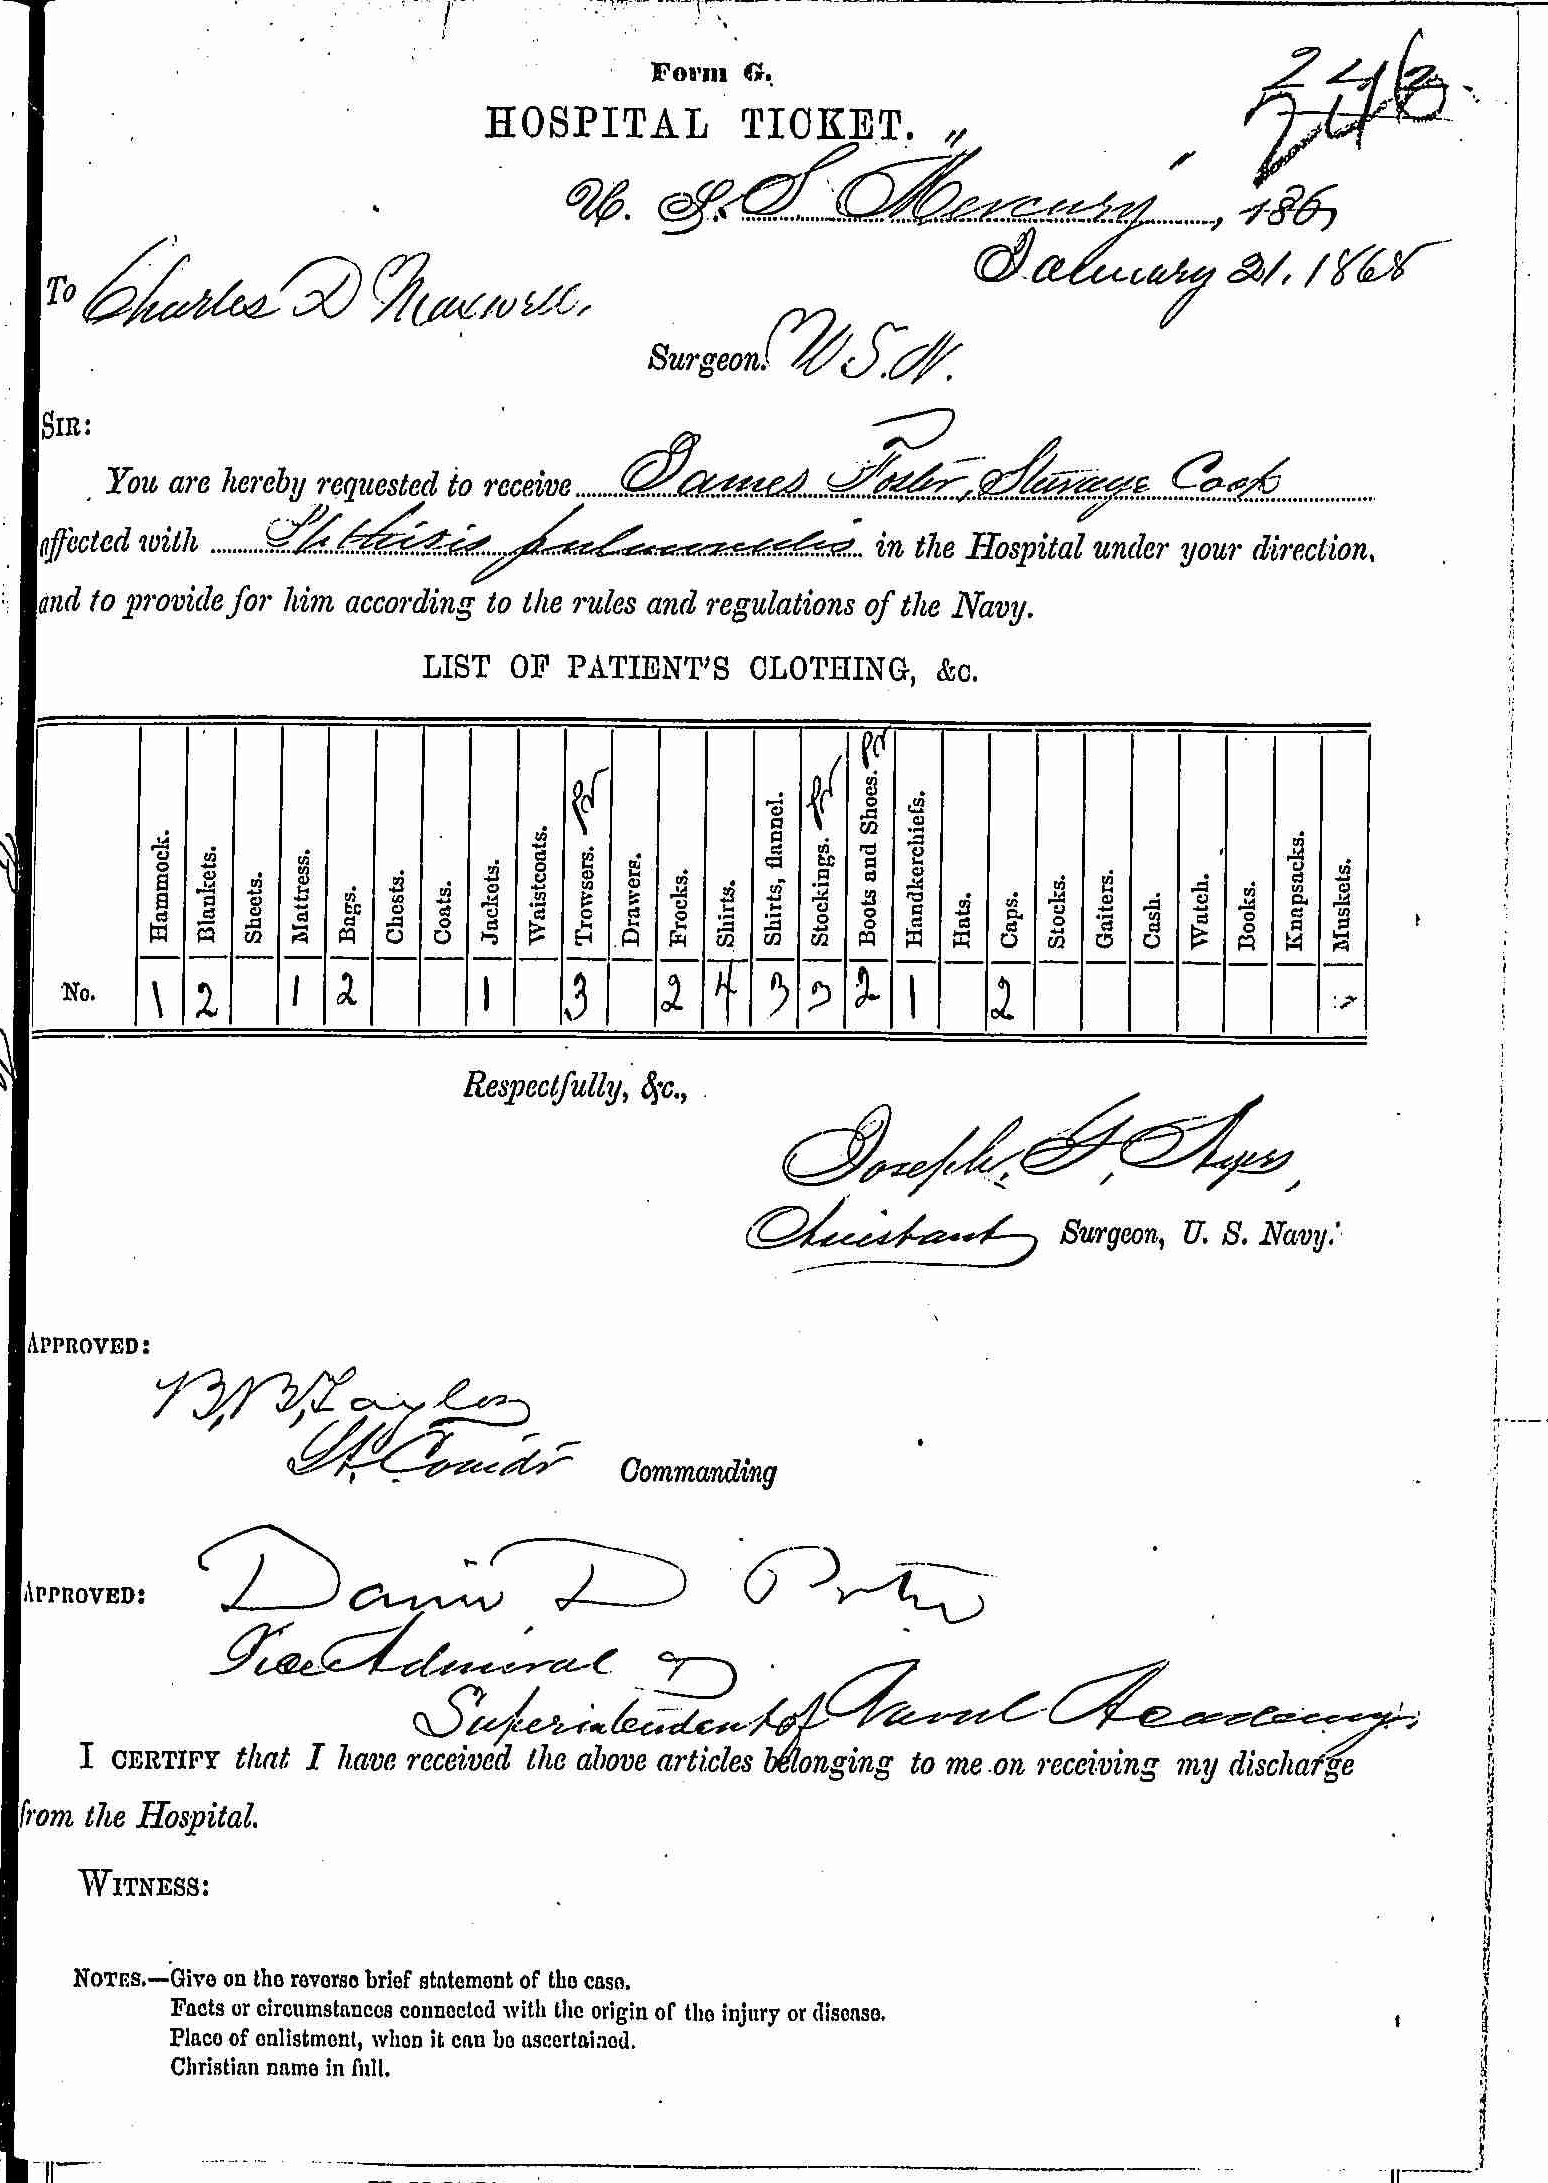 Form G.
HOSPITAL TICKET.
246
U. S. S. "Mercury", 186
January 21. 1868
To Charles D Maxwell.
Surgeon. U S. N.
SIR:
You are hereby requested to receive James Foster, Steerage Cook
affected with Phthisis pulmonalis in the Hospital under your direction,
and to provide for him according to the rules and regulations of the Navy.
LIST OF PATIENT'S CLOTHING, &c.
Hammock. Blankets. Sheets. Mattress. Bags. Chests. Coats. Jackets. Waistcoats. Trowsers. pr Drawers. Frocks. Shirts. Shirts, flannel. Stockings. pr Boots and Shoes. pr Handkerchiefs. Hats. Caps. Stocks. Gaiters. Cash. Watch. Books. Knapsacks. Muskets.
No. 1 2 1 2 1 3 2 4 3 3 2 1 2
Respectfully, &c.,
Joseph. G. Ayers,
Assistant Surgeon, U. S. Navy.
APPROVED:
B. B. Taylor
Lt. Comdr Commanding
APPROVED: David D Porter
Vice Admiral
Superintendent of Naval Academy.
I CERTIFY that I have received the above articles belonging to me on receiving my discharge
from the Hospital.
WITNESS:
NOTES.—Give on the reverse brief statement of the case.
Facts or circumstances connected with the origin of the injury or disease.
Place of enlistment, when it can be ascertained.
Christian name in full.